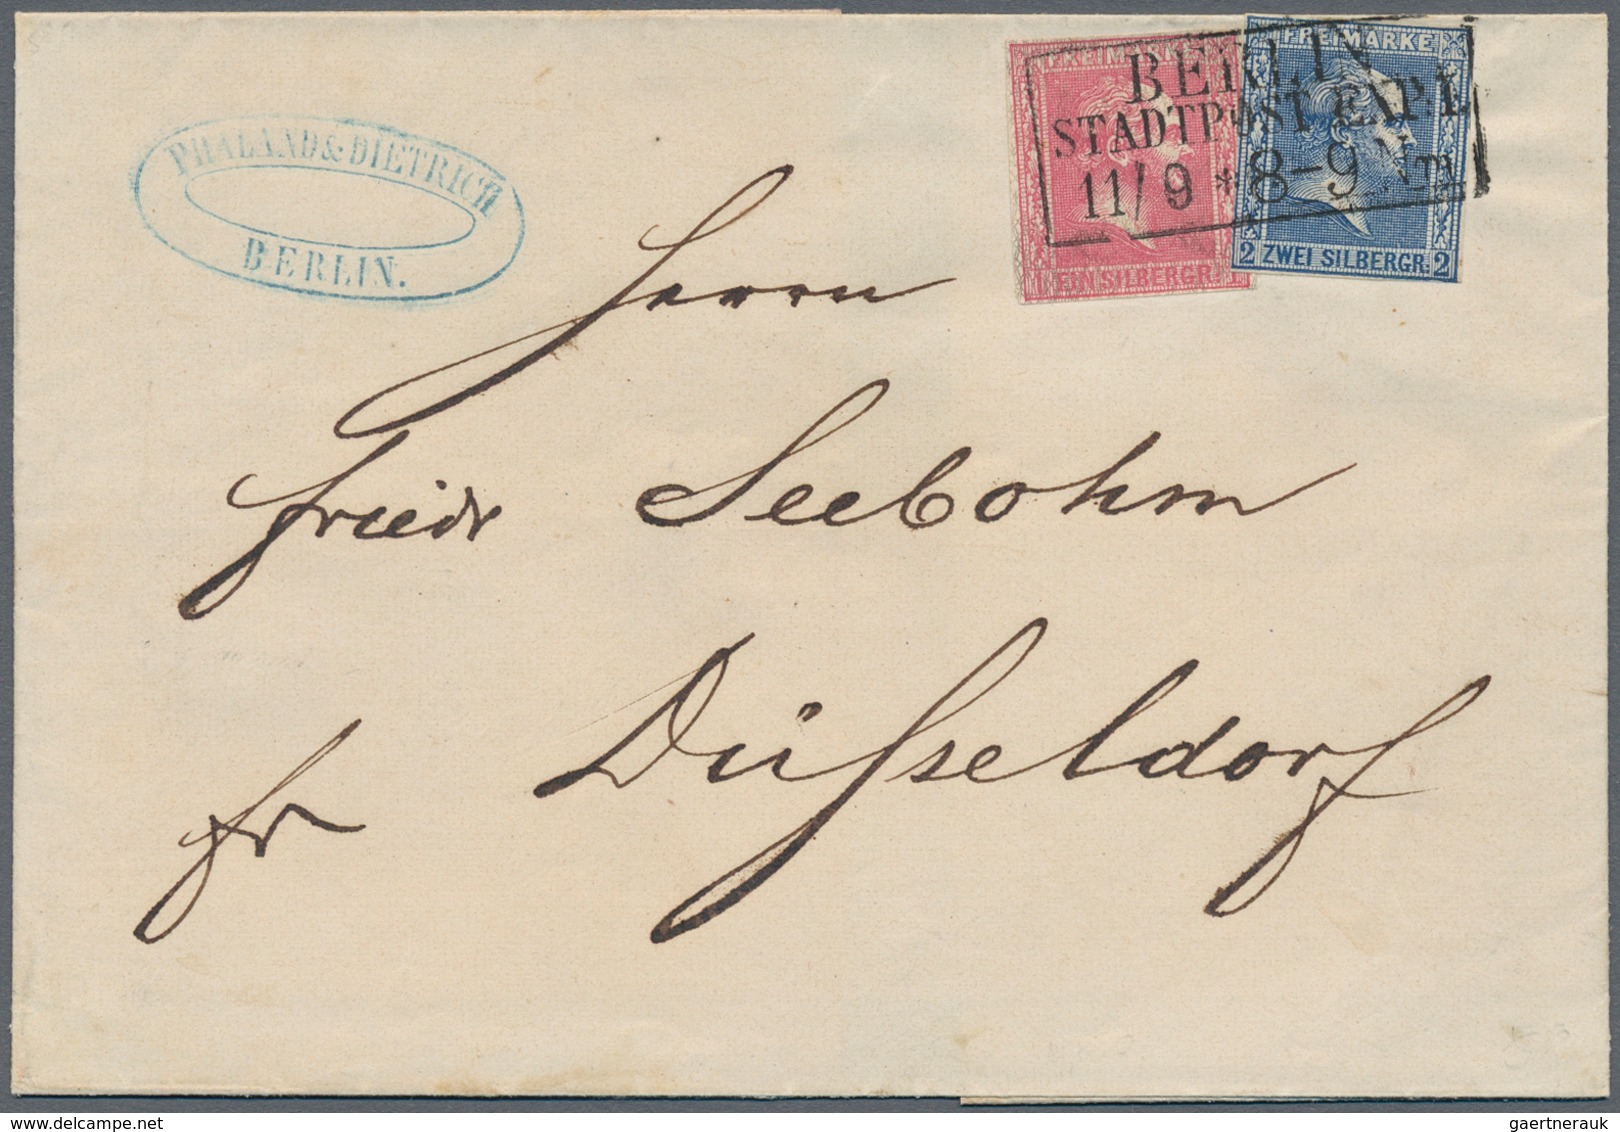 PHALAND & DIETRICH
BERLIN.
FREIMARKE
EIN SILBERGR.
FREIMARKE
2 ZWEI SILBERGR. 2
BERLIN
STADTPOST EXP. I.
11/9 * 8-9 Ntm
Herrn
Friedr Seebohm
fr Düsseldorf
gaertnerauk